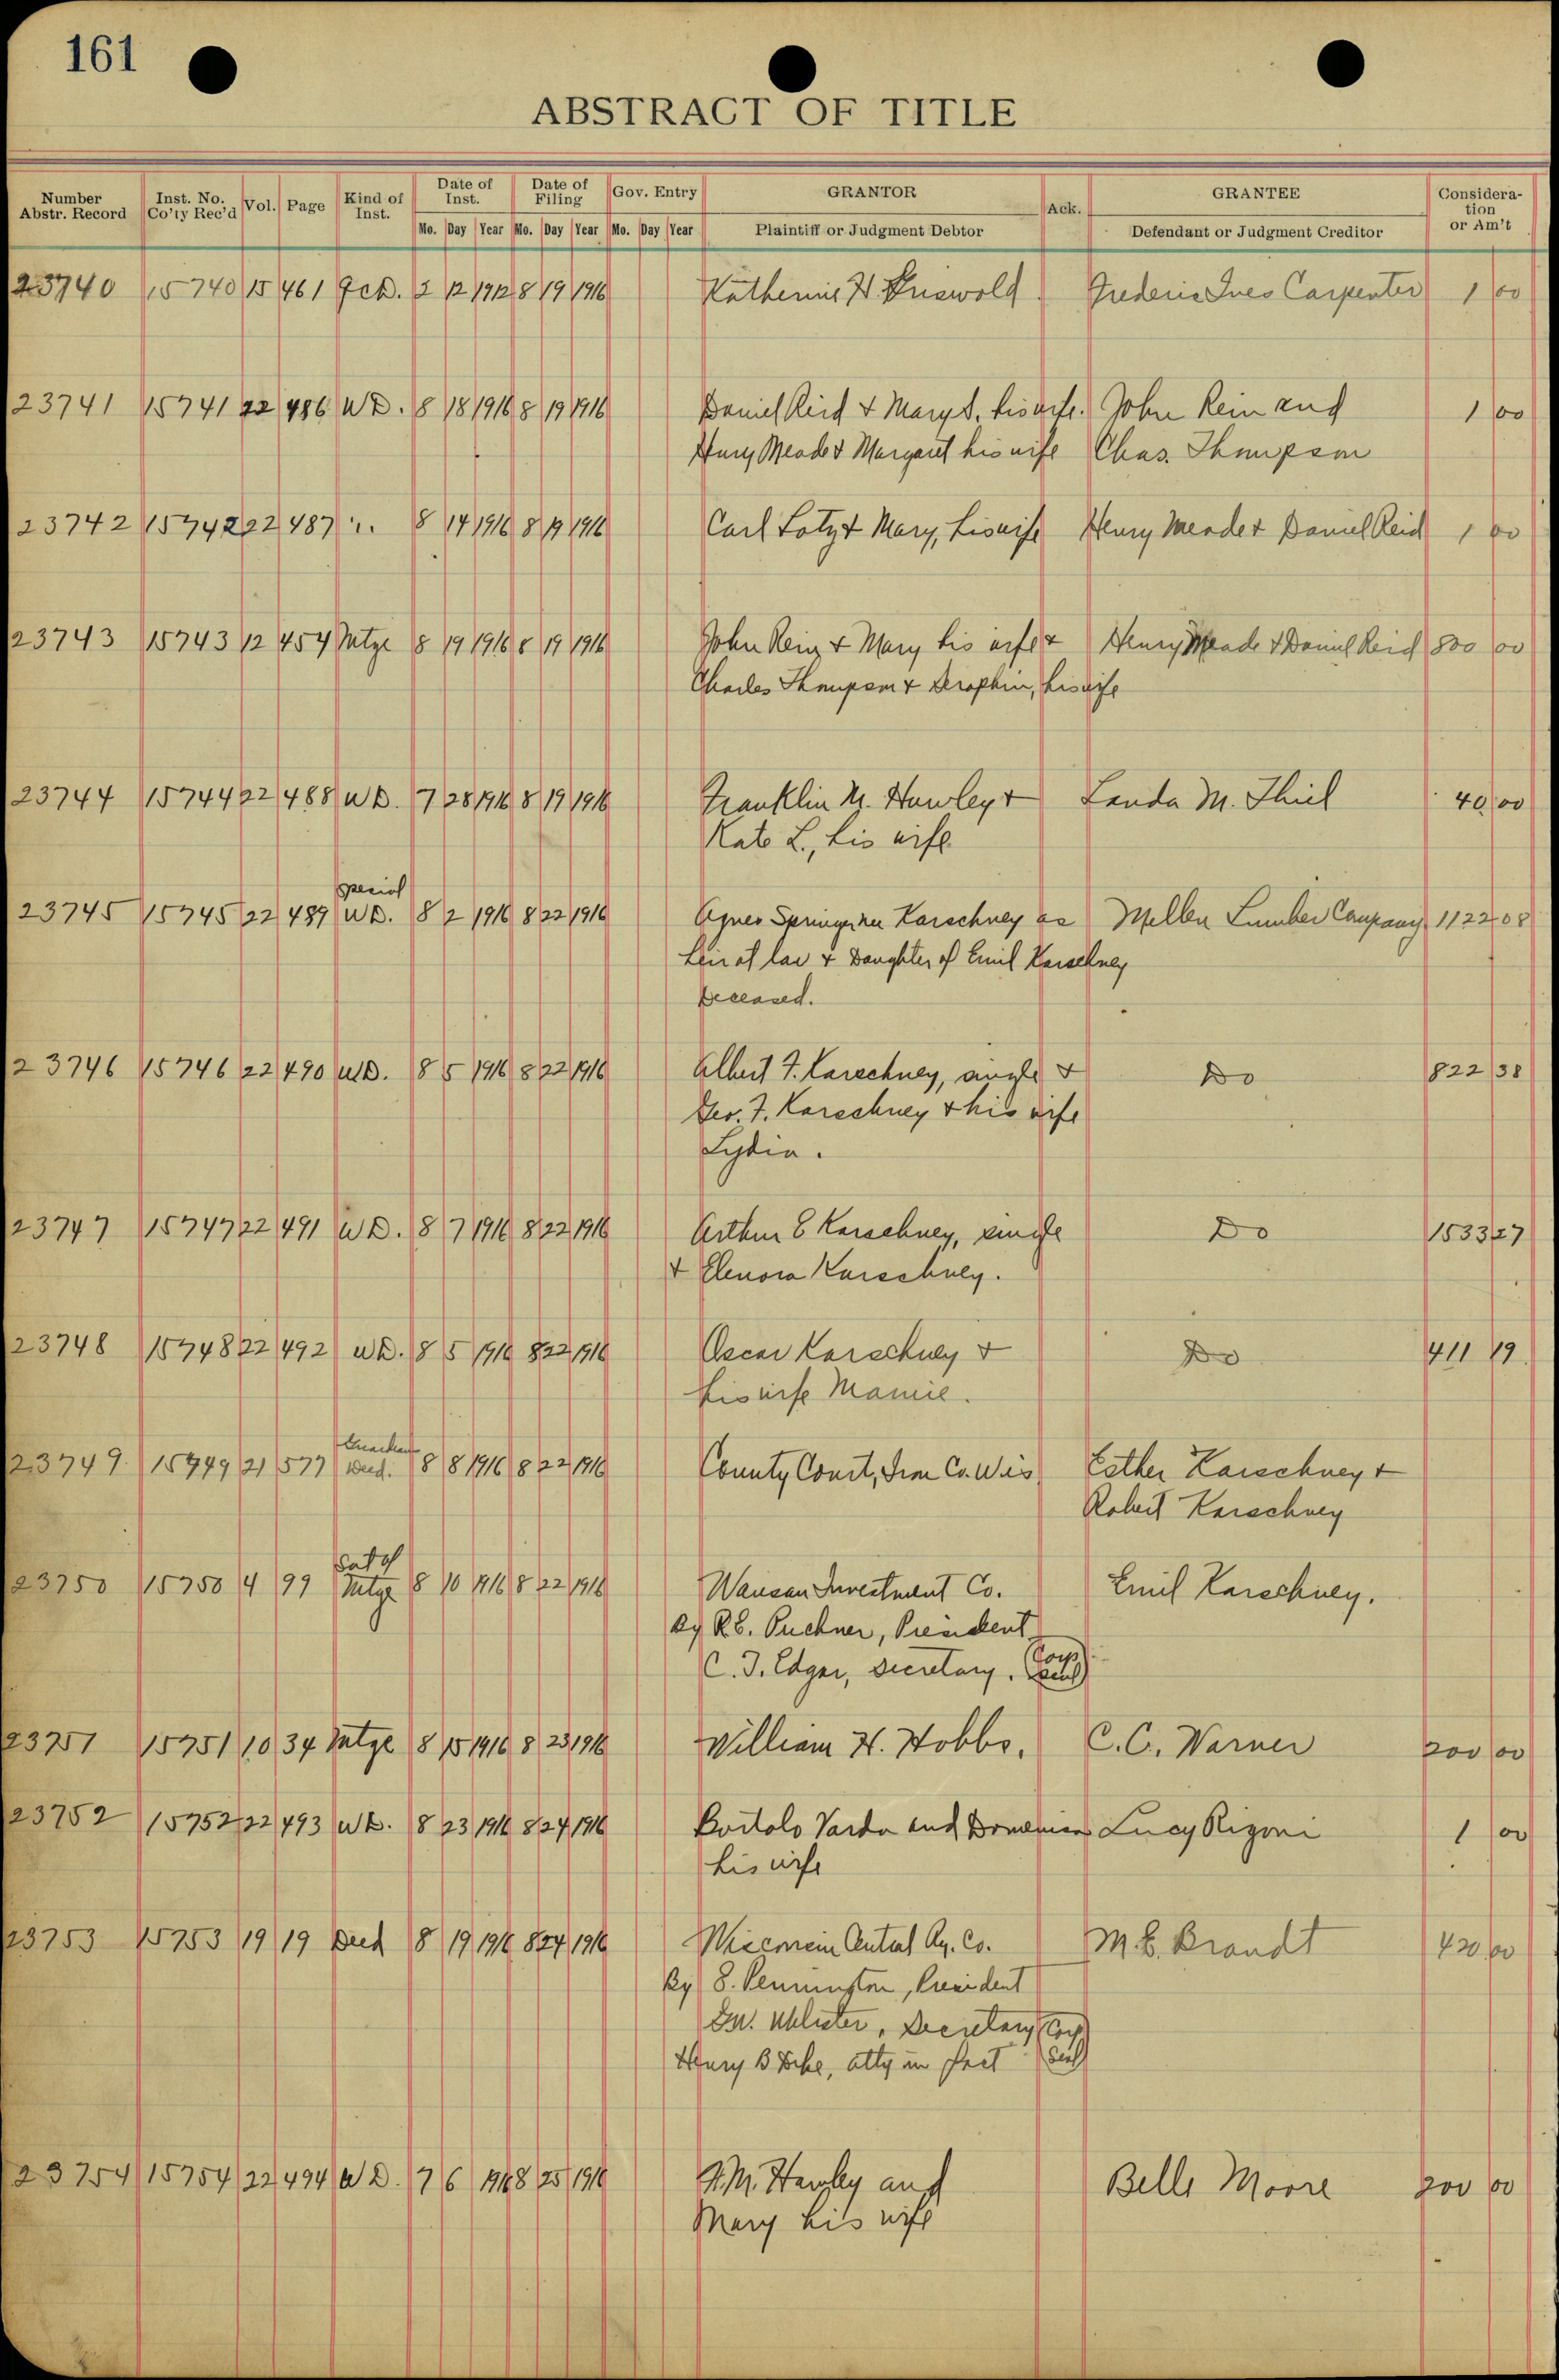 161
ABSTRACT OF TITLE
Number Abstr. Record Inst. No. Co'ty Rec'd Vol. Page Kind of Inst. Date of Inst. Date of Filing Gov. Entry GRANTOR Ack. GRANTEE Considera-tion or Am't
Mo. Day Year Mo. Day Year Mo. Day Year Plaintiff or Judgment Debtor Defendant or Judgment Creditor
23740 15740 15 461 QCD. 2 12 1912 8 19 1916 Katherine H. Griswold Frederic Ives Carpenter 1 00
23741 15741 22 486 WD. 8 18 1916 8 19 1916 Daniel Reid & Mary S. his wife. John Rein and 1 00
Henry Meade & Margaret his wife Chas. Thompson
23742 15742 22 487 ". 8 14 1916 8 19 1916 Carl Lotz & Mary, his wife Henry Meade & Daniel Reid 1 00
23743 15743 12 454 Mtge 8 19 1916 8 19 1916 John Rein & Mary his wife & Henry Meade & Daniel Reid 800 00
Charles Thompson & Seraphin, his wife
23744 15744 22 488 WD. 7 28 1916 8 19 1916 Franklin M. Hawley & Landa M. Thiel 40 00
Kate L., his wife
Special
23745 15745 22 489 WD. 8 2 1916 8 22 1916 Agnes Springer nee Karschney as Mellen Lumber Company 1122 08
heir at law & Daughter of Emil Karschney
Deceased.
23746 15746 22 490 WD. 8 5 1916 8 22 1916 Albert F. Karschney, single & Do 822 38
Geo. F. Karschney & his wife
Lydia.
23747 15747 22 491 WD. 8 7 1916 8 22 1916 Arthur E Karschney, single Do 1533 27
& Elenora Karschney.
23748 15748 22 492 WD. 8 5 1916 8 22 1916 Oscar Karschney & Do 411 19
his wife Mamie.
Guardian
23749 15749 21 577 Deed. 8 8 1916 8 22 1916 County Court, Iron Co. Wis Esther Karschney &
Robert Karschney
Sat of
23750 15750 4 99 Mtge 8 10 1916 8 22 1916 Wausau Investment Co. Emil Karschney.
By R.E. Puchner, President
C. J. Edgar, Secretary. (Corp Seal)
23751 15751 10 34 Mtge 8 15 1916 8 23 1916 William H. Hobbs. C.C. Warner 200 00
23752 15752 22 493 WD. 8 23 1916 8 24 1916 Bortolo Varda and Domenica Lucy Rigoni 1 00
his wife
23753 15753 19 19 Deed 8 19 1916 8 24 1916 Wisconsin Central Ry. Co. M.E. Brandt 420 00
By E. Pennington, President
Secretary (Corp
Henry B atty in fact Seal)
23754 15754 22 494 WD. 7 6 1916 8 25 1916 F.M. Hawley and Belle Moore 200 00
Mary his wife